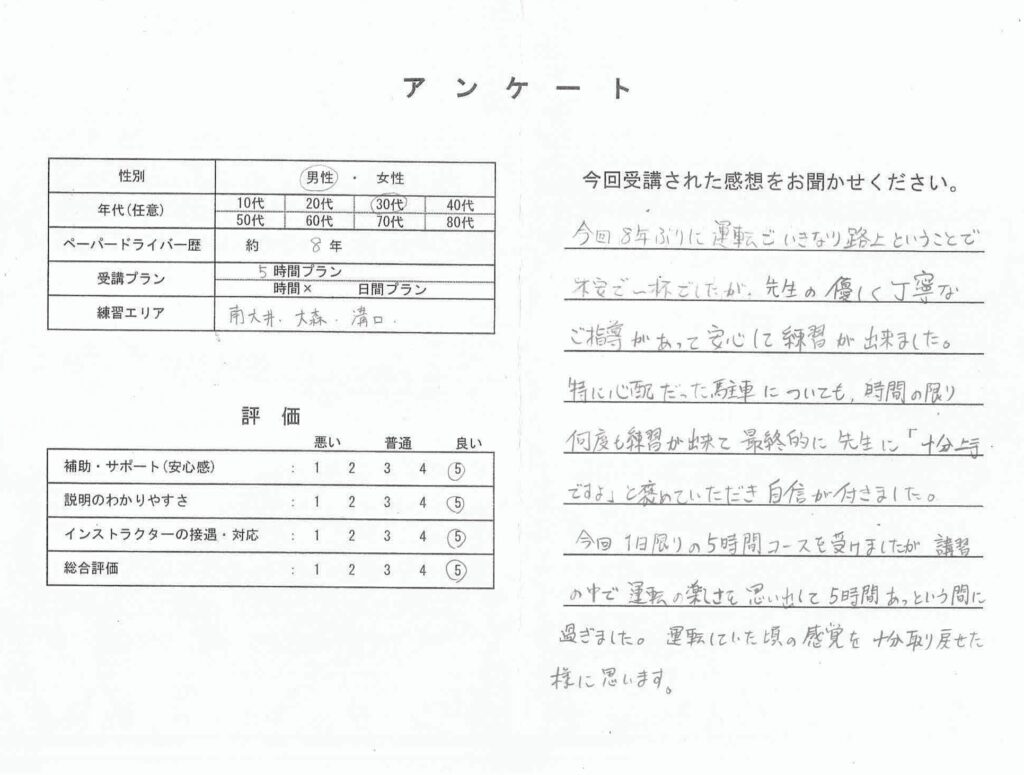 アンケート
性別 男性 ・ 女性
年代(任意) 10代 20代 30代 40代
50代 60代 70代 80代
ペーパードライバー歴 約 8 年
受講プラン 5 時間プラン
時間× 日間プラン
練習エリア 南大井. 大森. 溝口.
評価
悪い 普通 良い
補助・サポート(安心感) : 1 2 3 4 5
説明のわかりやすさ : 1 2 3 4 5
インストラクターの接遇・対応 : 1 2 3 4 5
総合評価 : 1 2 3 4 5
今回受講された感想をお聞かせください。
今回8年ぶりに運転でいきなり路上ということで
不安で一杯でしたが、先生の優しく丁寧な
ご指導があって安心して練習が出来ました。
特に心配だった駐車についても、時間の限り
何度も練習が出来て最終的に先生に「十分上手
ですよ」と褒めていただき自信が付きました。
今回1日限りの5時間コースを受けましたが講習
の中で運転の楽しさを思い出して5時間あっという間に
過ぎました。運転していた頃の感覚を十分取り戻せた
様に思います。